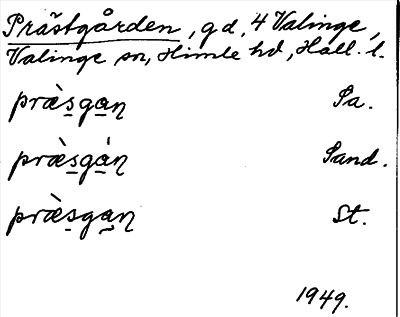 Prästgården, gd, 4 Valinge,
Valinge sn, Himle hd, Hall. l.
præ̀s̲ga̲ɳ Sa.
præ̀s̲gá̲ɳ Sand.
præ̀s̲ga̲ɳ St.
1949.